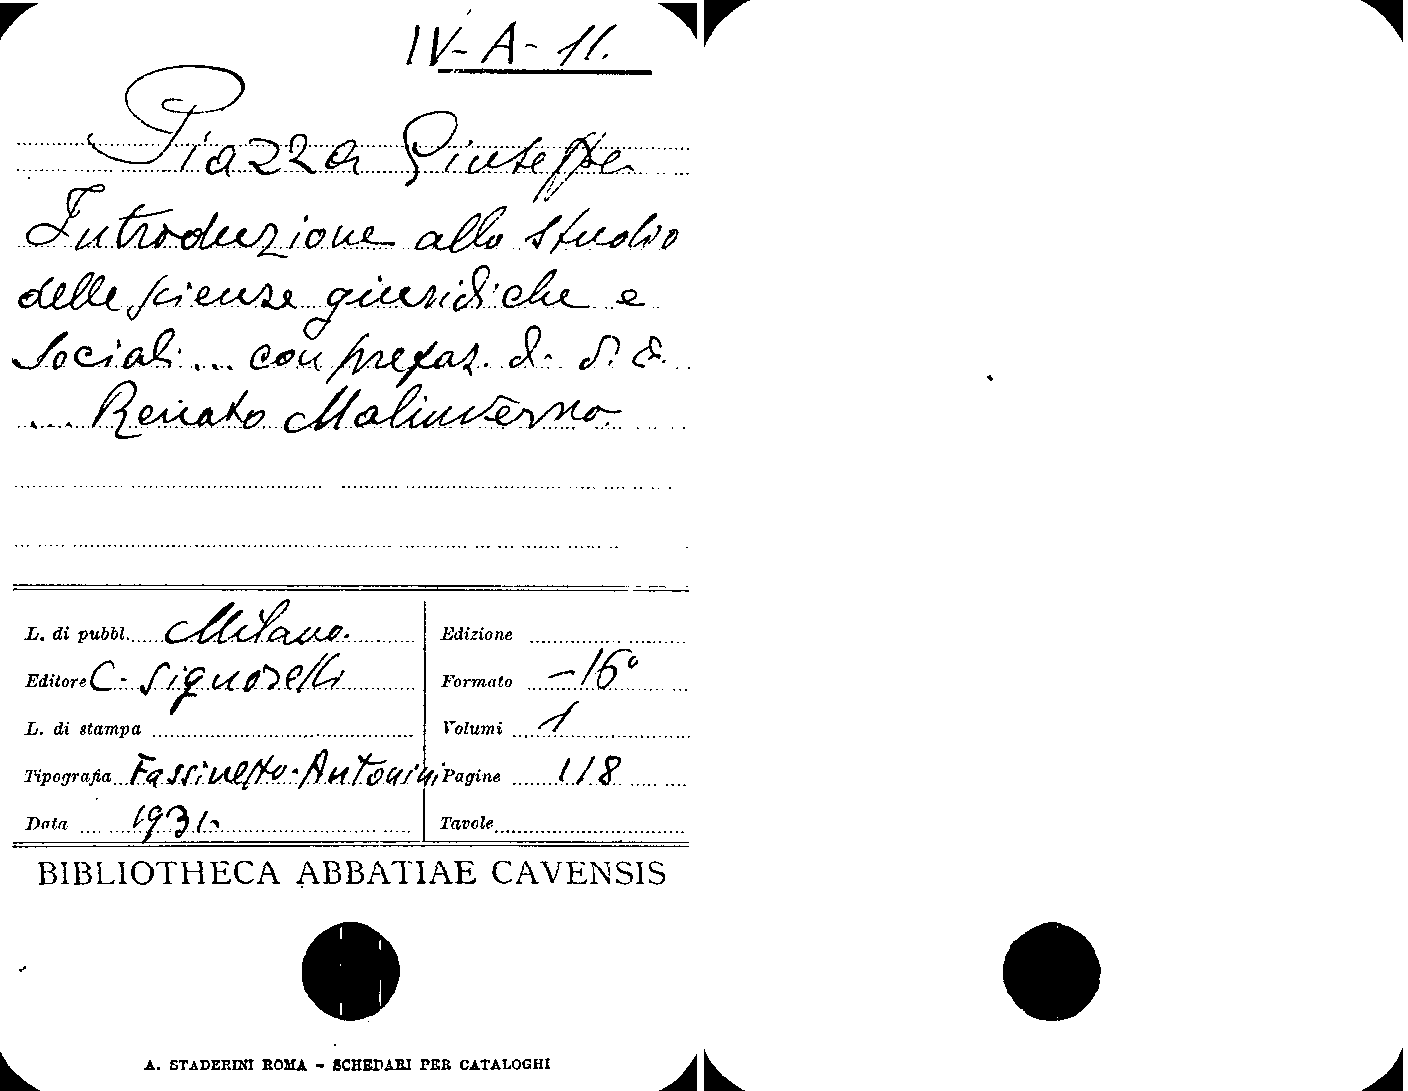 IV-A-11.
Piazza Giuseppe
Introduzione allo studio
delle scienze giuridiche e
sociali... con prefaz. di S. E.
... Renato Malinverno.
L. di pubbl. Milano.
Edizione
Editore C. Signorelli
Formato -16°
L. di stampa
Volumi 1
Tipografia Fassinetto-Antonini
Pagine 118
Data 1931.
Tavole
BIBLIOTHECA ABBATIAE CAVENSIS
A. STADERINI ROMA - SCHEDARI PER CATALOGHI